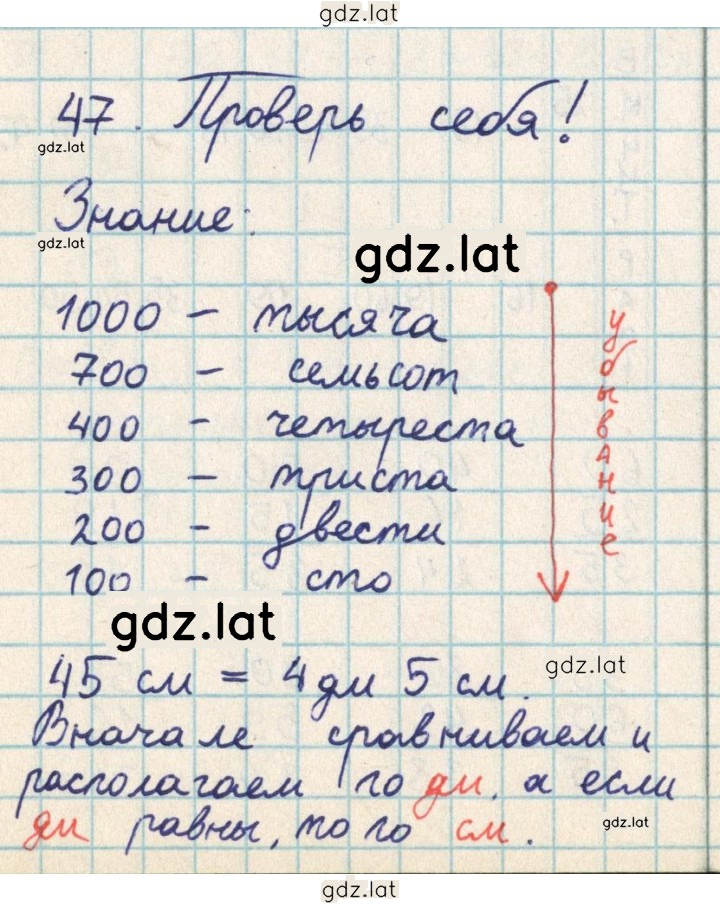 gdz.lat
47. Проверь себя!
gdz.lat
Знание:
gdz.lat
gdz.lat
1000 – тысяча
700 – семьсот
400 – четыреста
300 – триста
200 – двести
100 – сто
убывание
gdz.lat
45 см = 4 дм 5 см.
gdz.lat
Вначале сравниваем и
располагаем по дм, а если
дм равны, то по см.
gdz.lat
gdz.lat